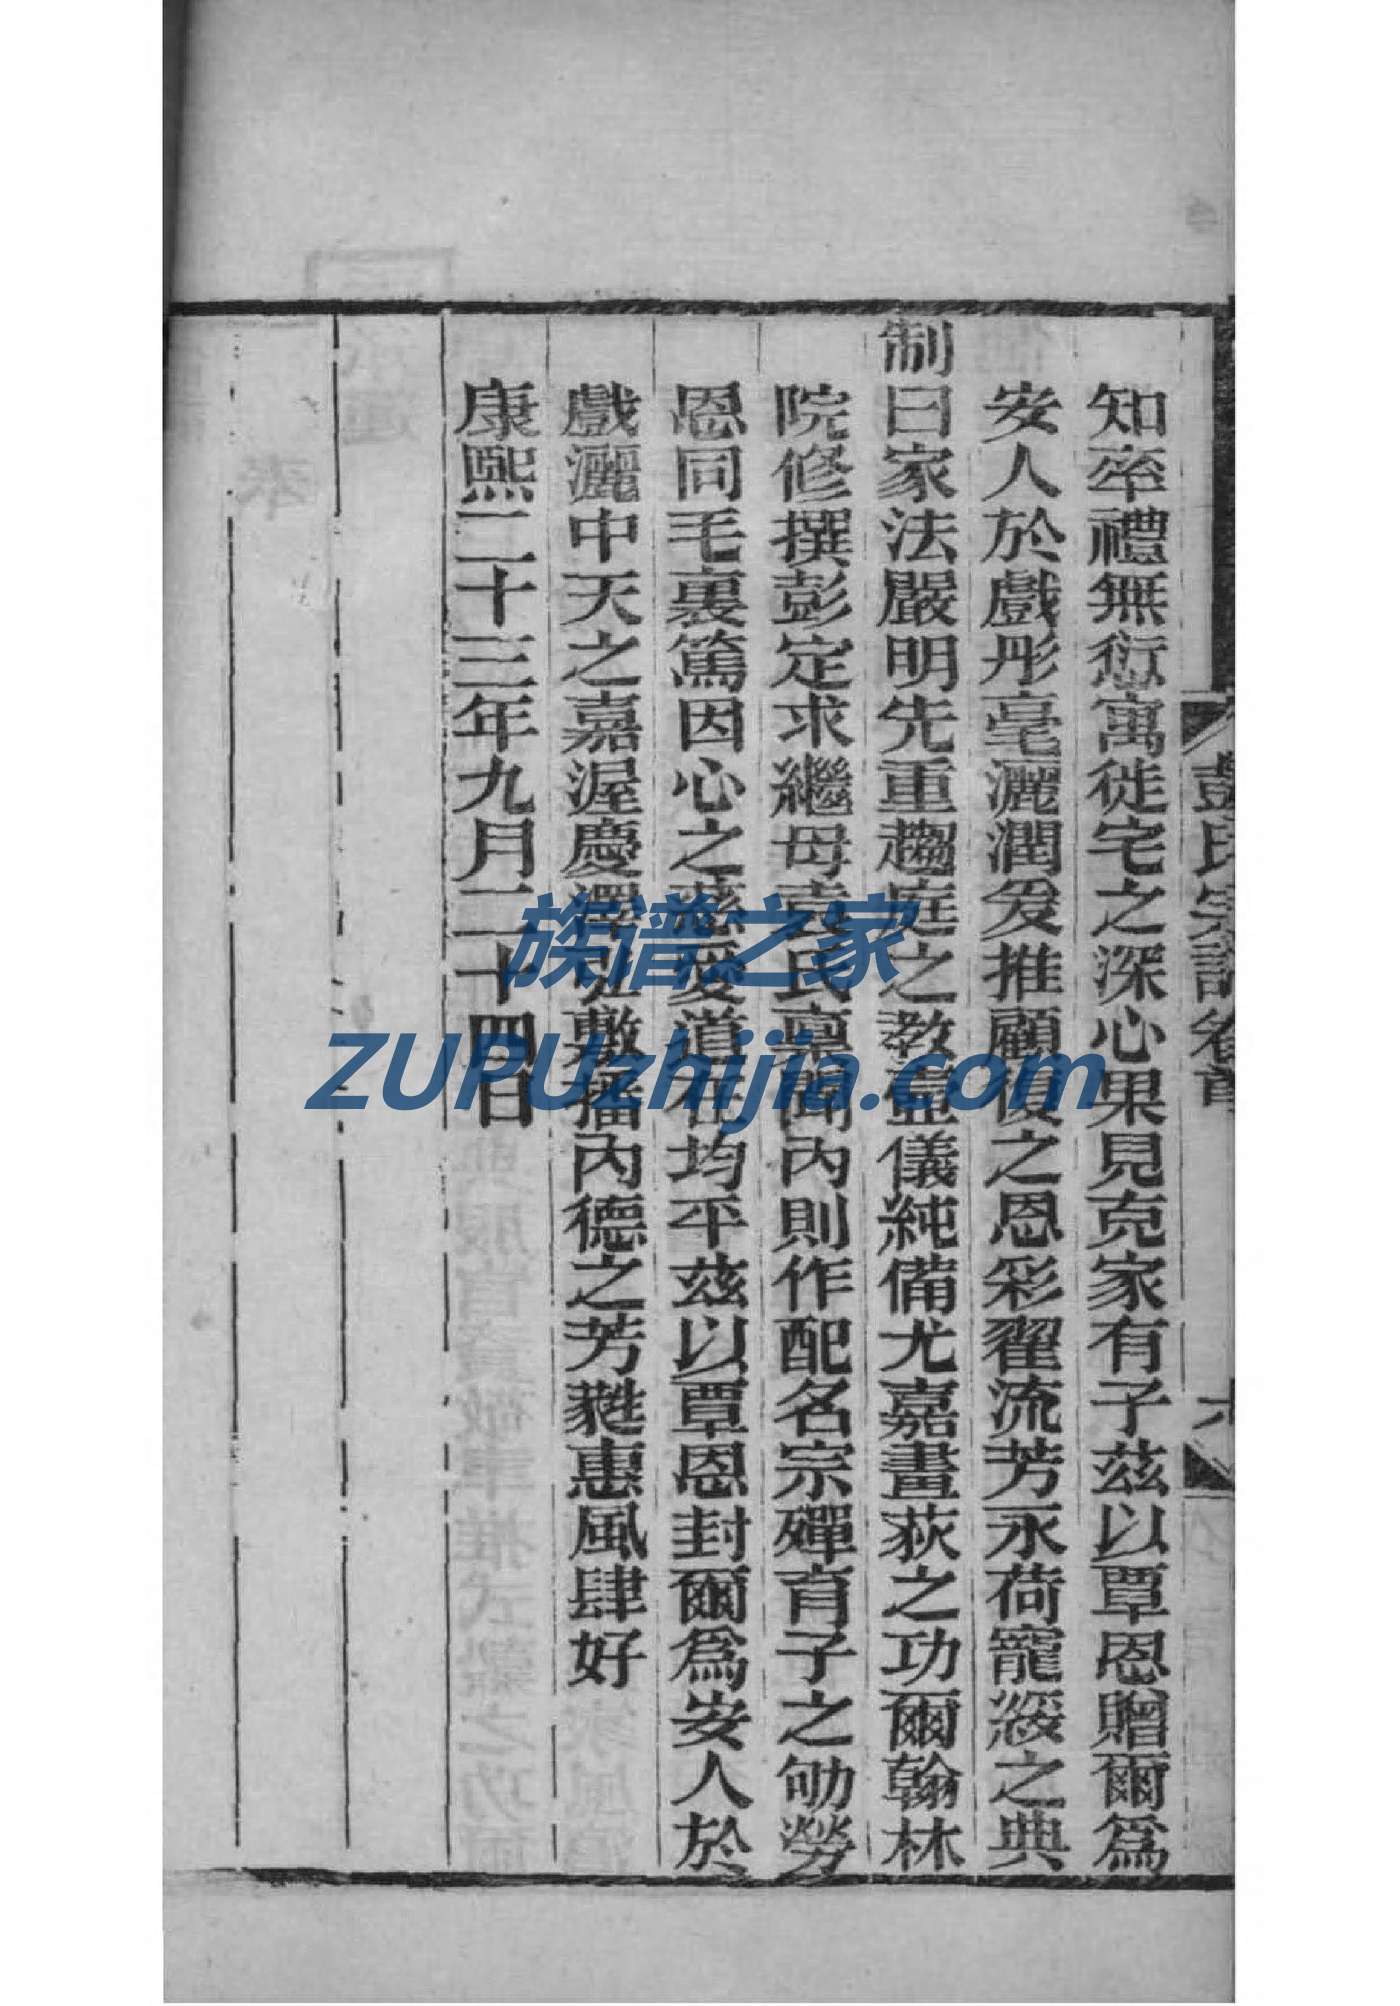 知率禮無愆寓徙宅之深心果見克家有子茲以覃恩贈爾爲
安人於戲彤毫灑潤爰推顧復之恩彩翟流芳永荷寵綏之典
制曰家法嚴明先重趨庭之教壼儀純備尤嘉畫荻之功爾翰林
院修撰彭定求繼母袁氏稟閑內則作配名宗殫育子之劬勞
恩同毛裏篤因心之慈愛道在均平茲以覃恩封爾爲安人於
戲灑中天之嘉渥慶澤弘敷播內德之芳蕤惠風肆好
康熙二十三年九月二十四日
彭氏宗譜卷首
六
族谱之家
ZUPUzhijia.com